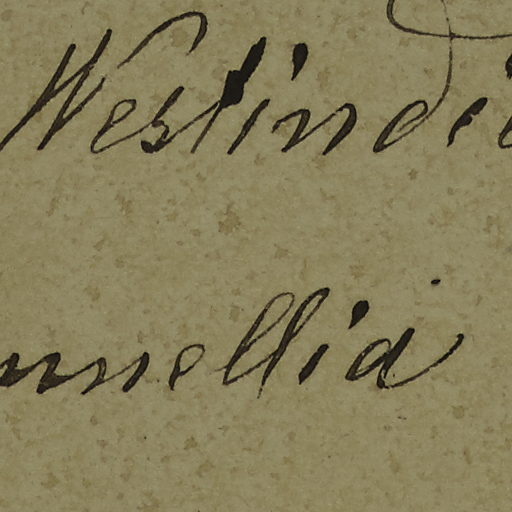 Westindi
nnellia